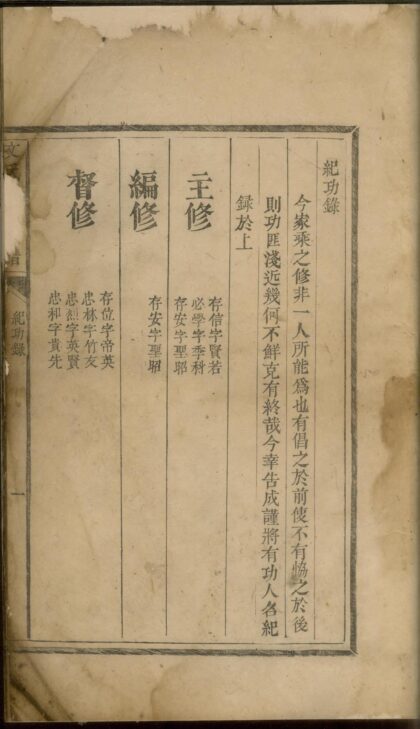 紀功錄
今家乘之修非一人所能爲也有倡之於前使不有恊之於後
則功匪淺近幾何不鮮克有終哉今幸告成謹將有功人名紀
録於上
主修
存信字賢若
必學字季科
存安字聖耶
編修
存安字聖昭
督修
存位字帝英
忠林字竹友
忠烈字英賢
忠和字貴先
紀功錄
一